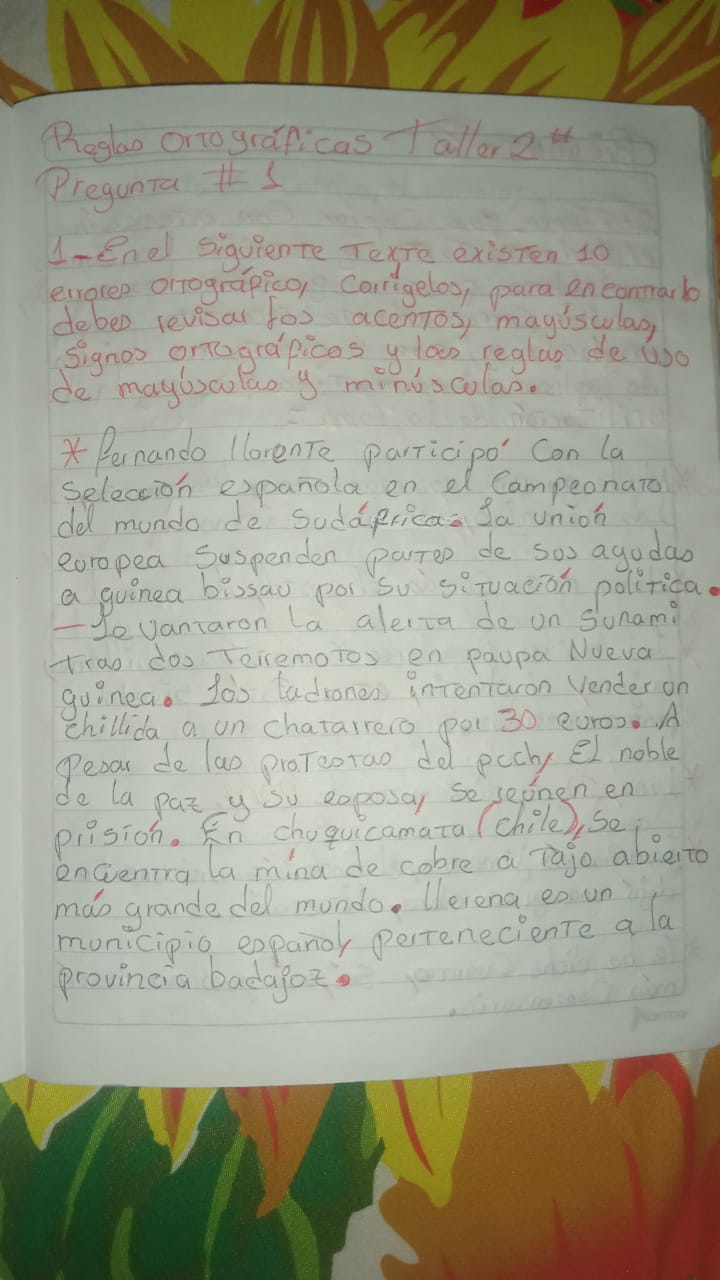 Reglas Ortográficas Taller 2#
Pregunta #1
1-En el siguiente Texto existen 10
errores ortográfico, Corrígelos, para encontrarlo
debes revisar los acentos, mayúsculas,
signos ortográficos y las reglas de uso
de mayúsculas y minúsculas.
* fernando llorente participó Con la
Selección española en el Campeonato
del mundo de sudáfrica. la unión
europea Suspenden partes de sus ayudas
a guinea bissau por su situación política.
-levantaron la alerta de un sunami
tras dos Terremotos en paupa Nueva
guinea. los ladrones intentaron Vender un
chillida a un chatarrero por 30 euros. A
pesar de las protestas del pcch, El noble
de la paz y su esposa, se reúnen en
prisión. En chuquicamata (chile), se
encuentra la mina de cobre a Tajo abierto
más grande del mundo. llerena es un
municipio español, perteneciente a la
provincia badajoz.
Norma